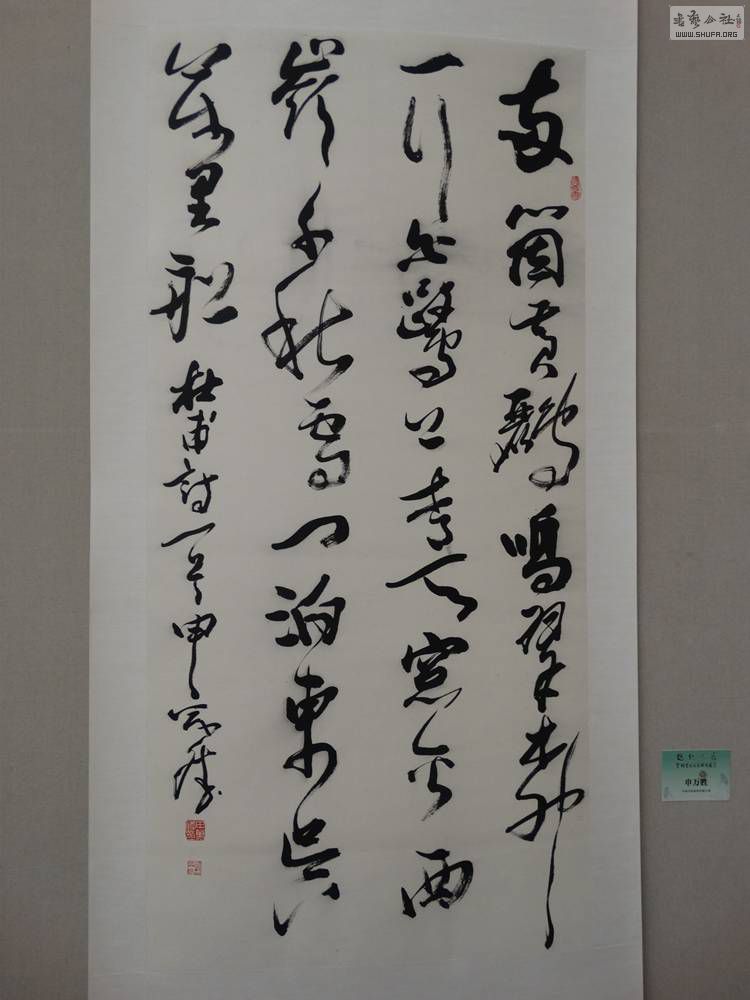 兩箇黄鸝鳴翠柳
一行白鷺上青天窓含西
嶺千秋雪門泊東吴
萬里船 杜甫詩一首 申萬勝
申万胜
書藝公社
WWW.SHUFA.ORG